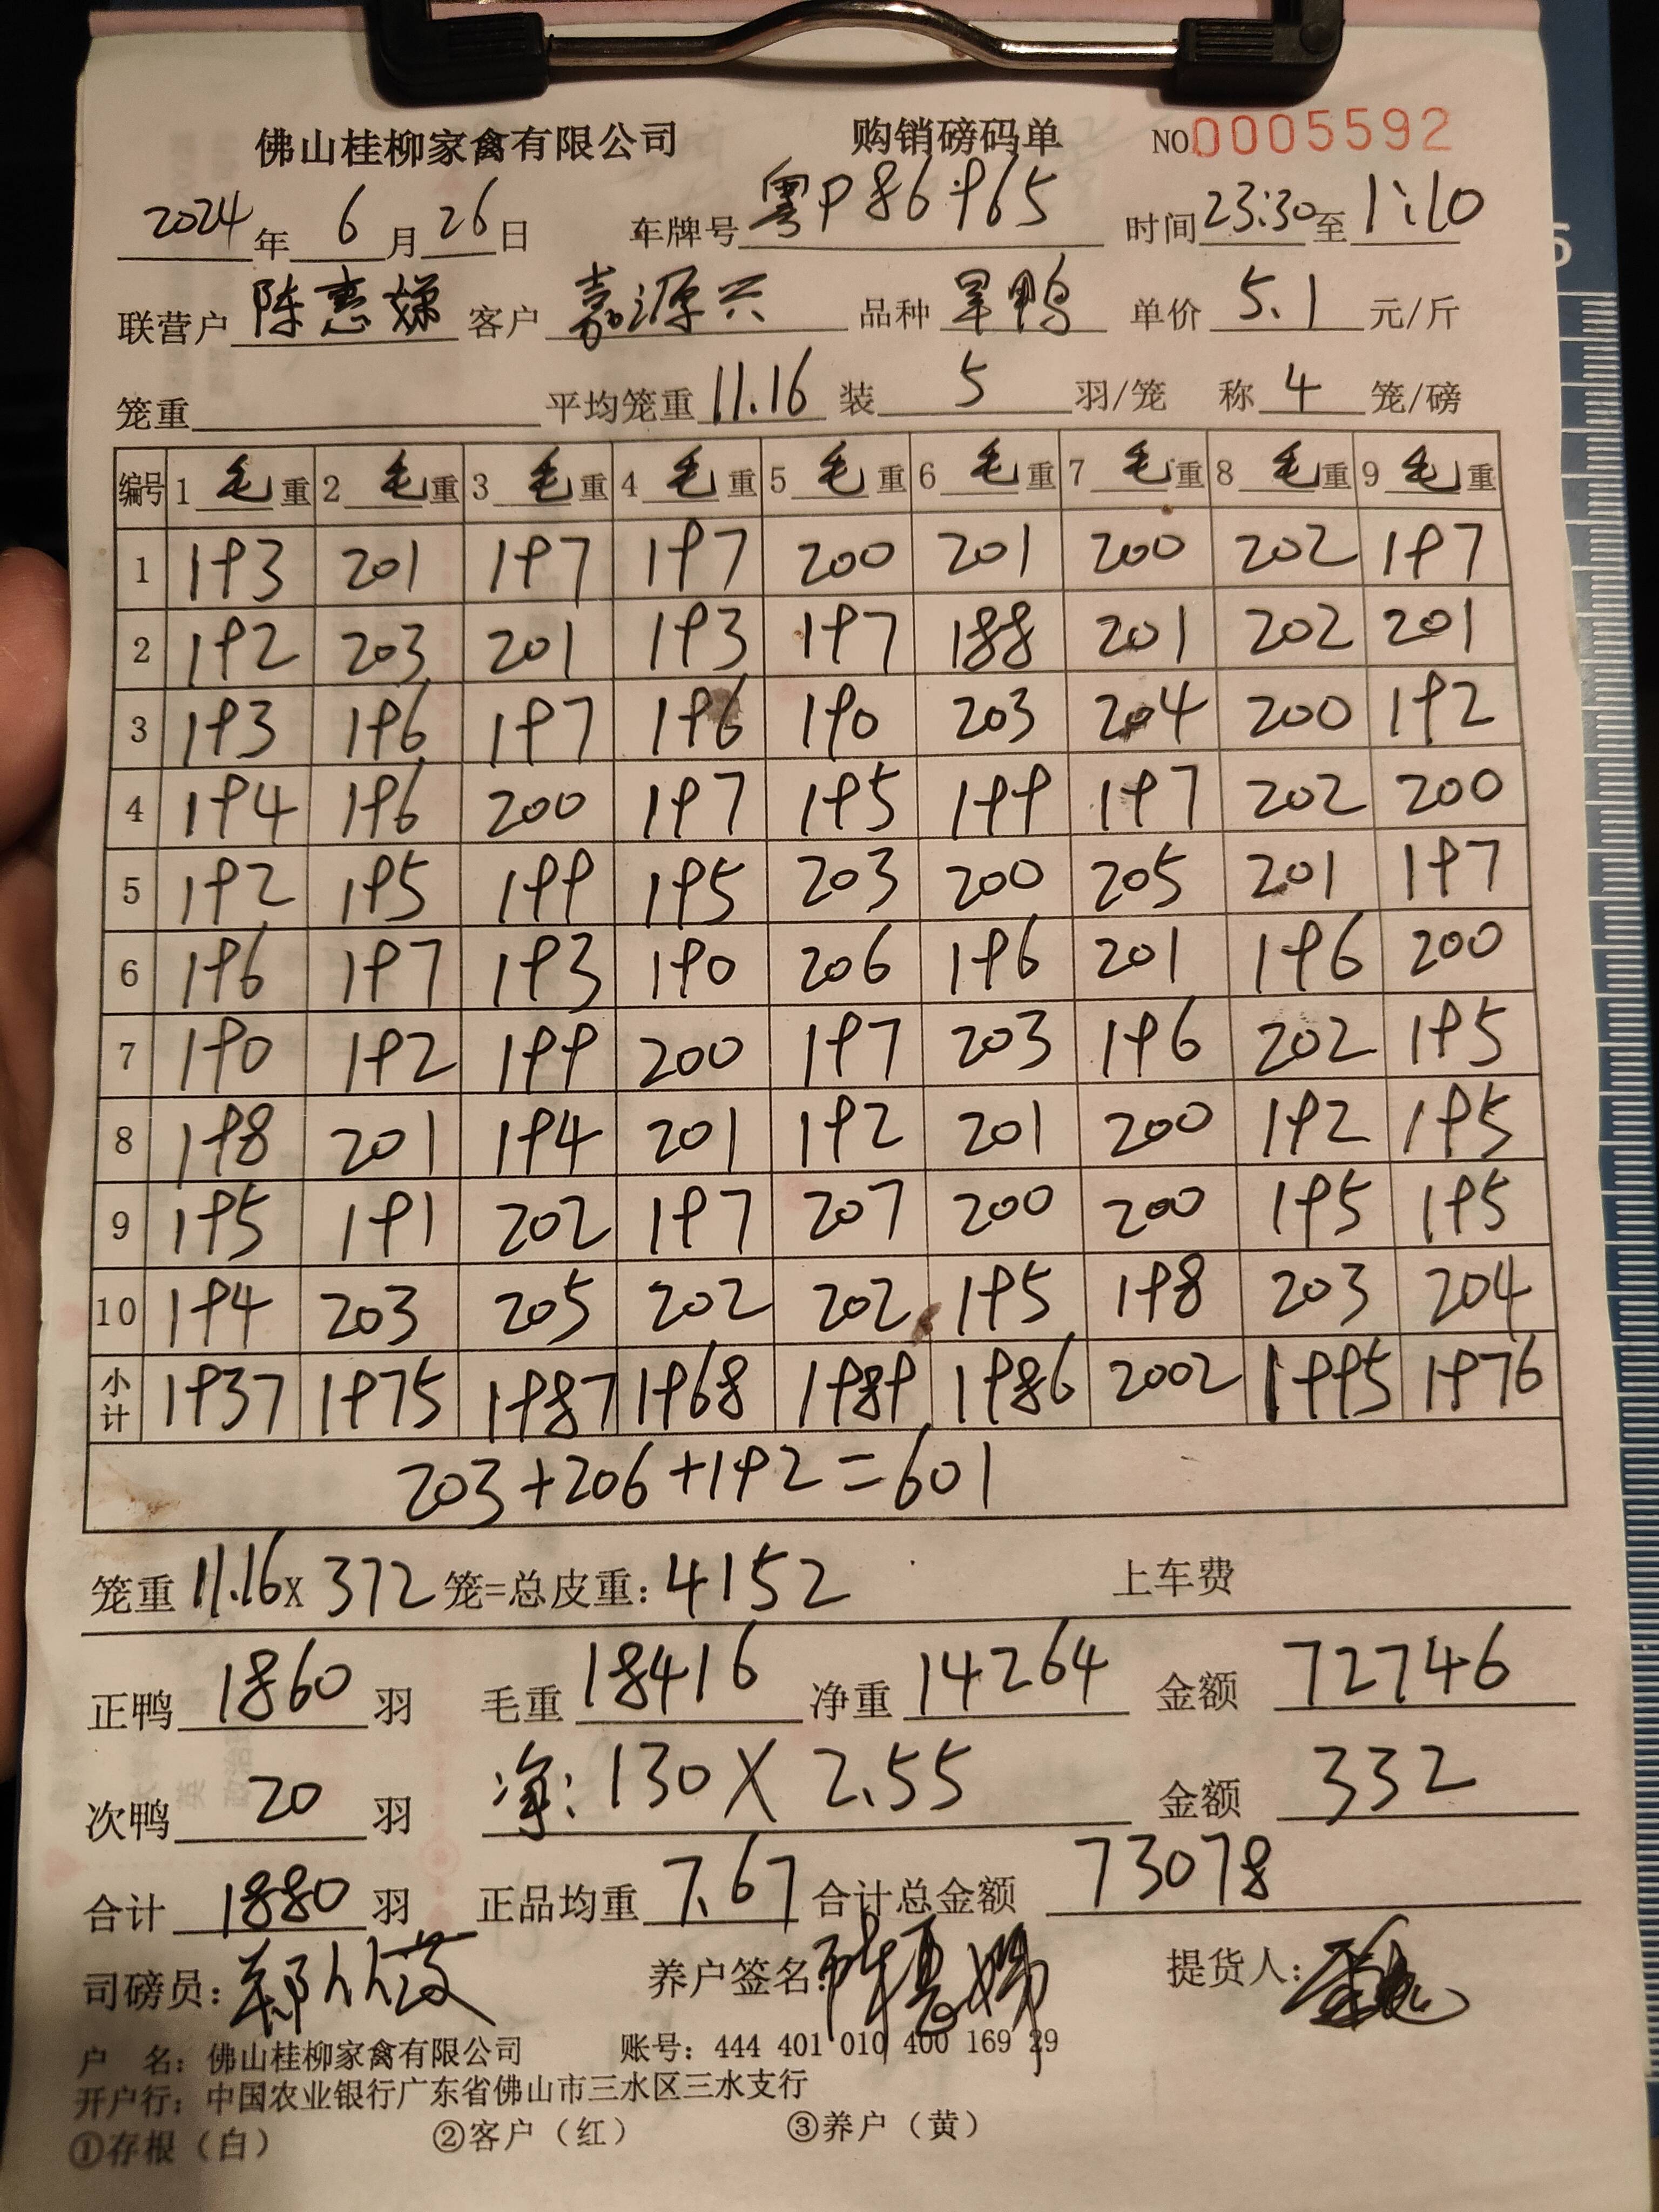 佛山桂柳家禽有限公司 购销磅码单 NO 0005592
2024年 6月 26日 车牌号 粤P86965 时间 23:30 至 1:10
联营户 陈惠娣 客户 嘉源兴 品种 旱鸭 单价 5.1 元/斤
笼重 平均笼重 11.16 装 5 羽/笼 称 4 笼/磅
编号 1 毛重 2 毛重 3 毛重 4 毛重 5 毛重 6 毛重 7 毛重 8 毛重 9 毛重
1 193 201 197 197 200 201 200 202 197
2 192 203 201 193 197 188 201 202 201
3 193 196 197 196 190 203 204 200 192
4 194 196 200 197 195 199 197 202 200
5 192 195 199 195 203 200 205 201 197
6 196 197 193 190 206 196 201 196 200
7 190 192 199 200 197 203 196 202 195
8 198 201 194 201 192 201 200 192 195
9 195 191 202 197 207 200 200 195 195
10 194 203 205 202 202 195 198 203 204
小计 1937 1975 1987 1968 1989 1986 2002 1995 1976
203+206+192=601
笼重 11.16 x 372 笼=总皮重: 4152 上车费
正鸭 1860 羽 毛重 18416 净重 14264 金额 72746
次鸭 20 羽 净: 130 X 2.55 金额 332
合计 1880 羽 正品均重 7.67 合计总金额 73078
司磅员: 养户签名: 陈惠娣 提货人:
户 名: 佛山桂柳家禽有限公司 账号: 444 401 010 400 169 29
开户行: 中国农业银行广东省佛山市三水区三水支行
①存根（白） ②客户（红） ③养户（黄）